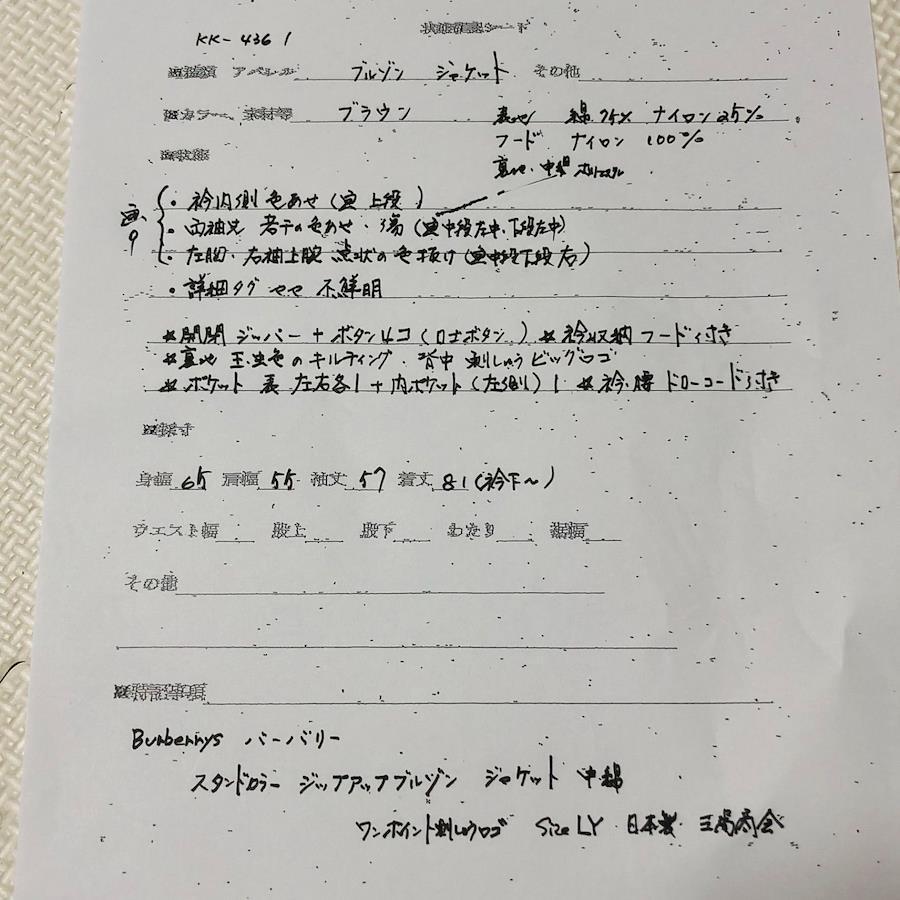 状態確認シート
KK-4361
アパレル ブルゾン ジャケット その他
カラー、素材等 ブラウン 表地 綿75% ナイロン25%
フード ナイロン 100%
状態 裏地・中綿 ポリエステル
・衿内側 色あせ (画 上段)
画、9 ・両袖先 若干の色あせ・傷 (画中段左中、下段左中)
・左胸・右袖上腕 点状の色抜け (画中段下段右)
・詳細タグ ヤヤ 不鮮明
※開閉 ジッパー + ボタン4コ (ロゴボタン) ※衿収納フード付き
※裏地 玉虫色のキルティング、背中 刺しゅう ビッグロゴ
※ポケット 表 左右各1 + 内ポケット (左側) 1 ※衿・腰 ドローコード付き
採寸
身幅 65 肩幅 55 袖丈 57 着丈 81 (衿下~)
ウエスト幅 股上 股下 わたり 裾幅
その他
特記事項
Burberrys バーバリー
スタンドカラー ジップアップブルゾン ジャケット 中綿
ワンポイント刺しゅうロゴ Size LY 日本製 三陽商会